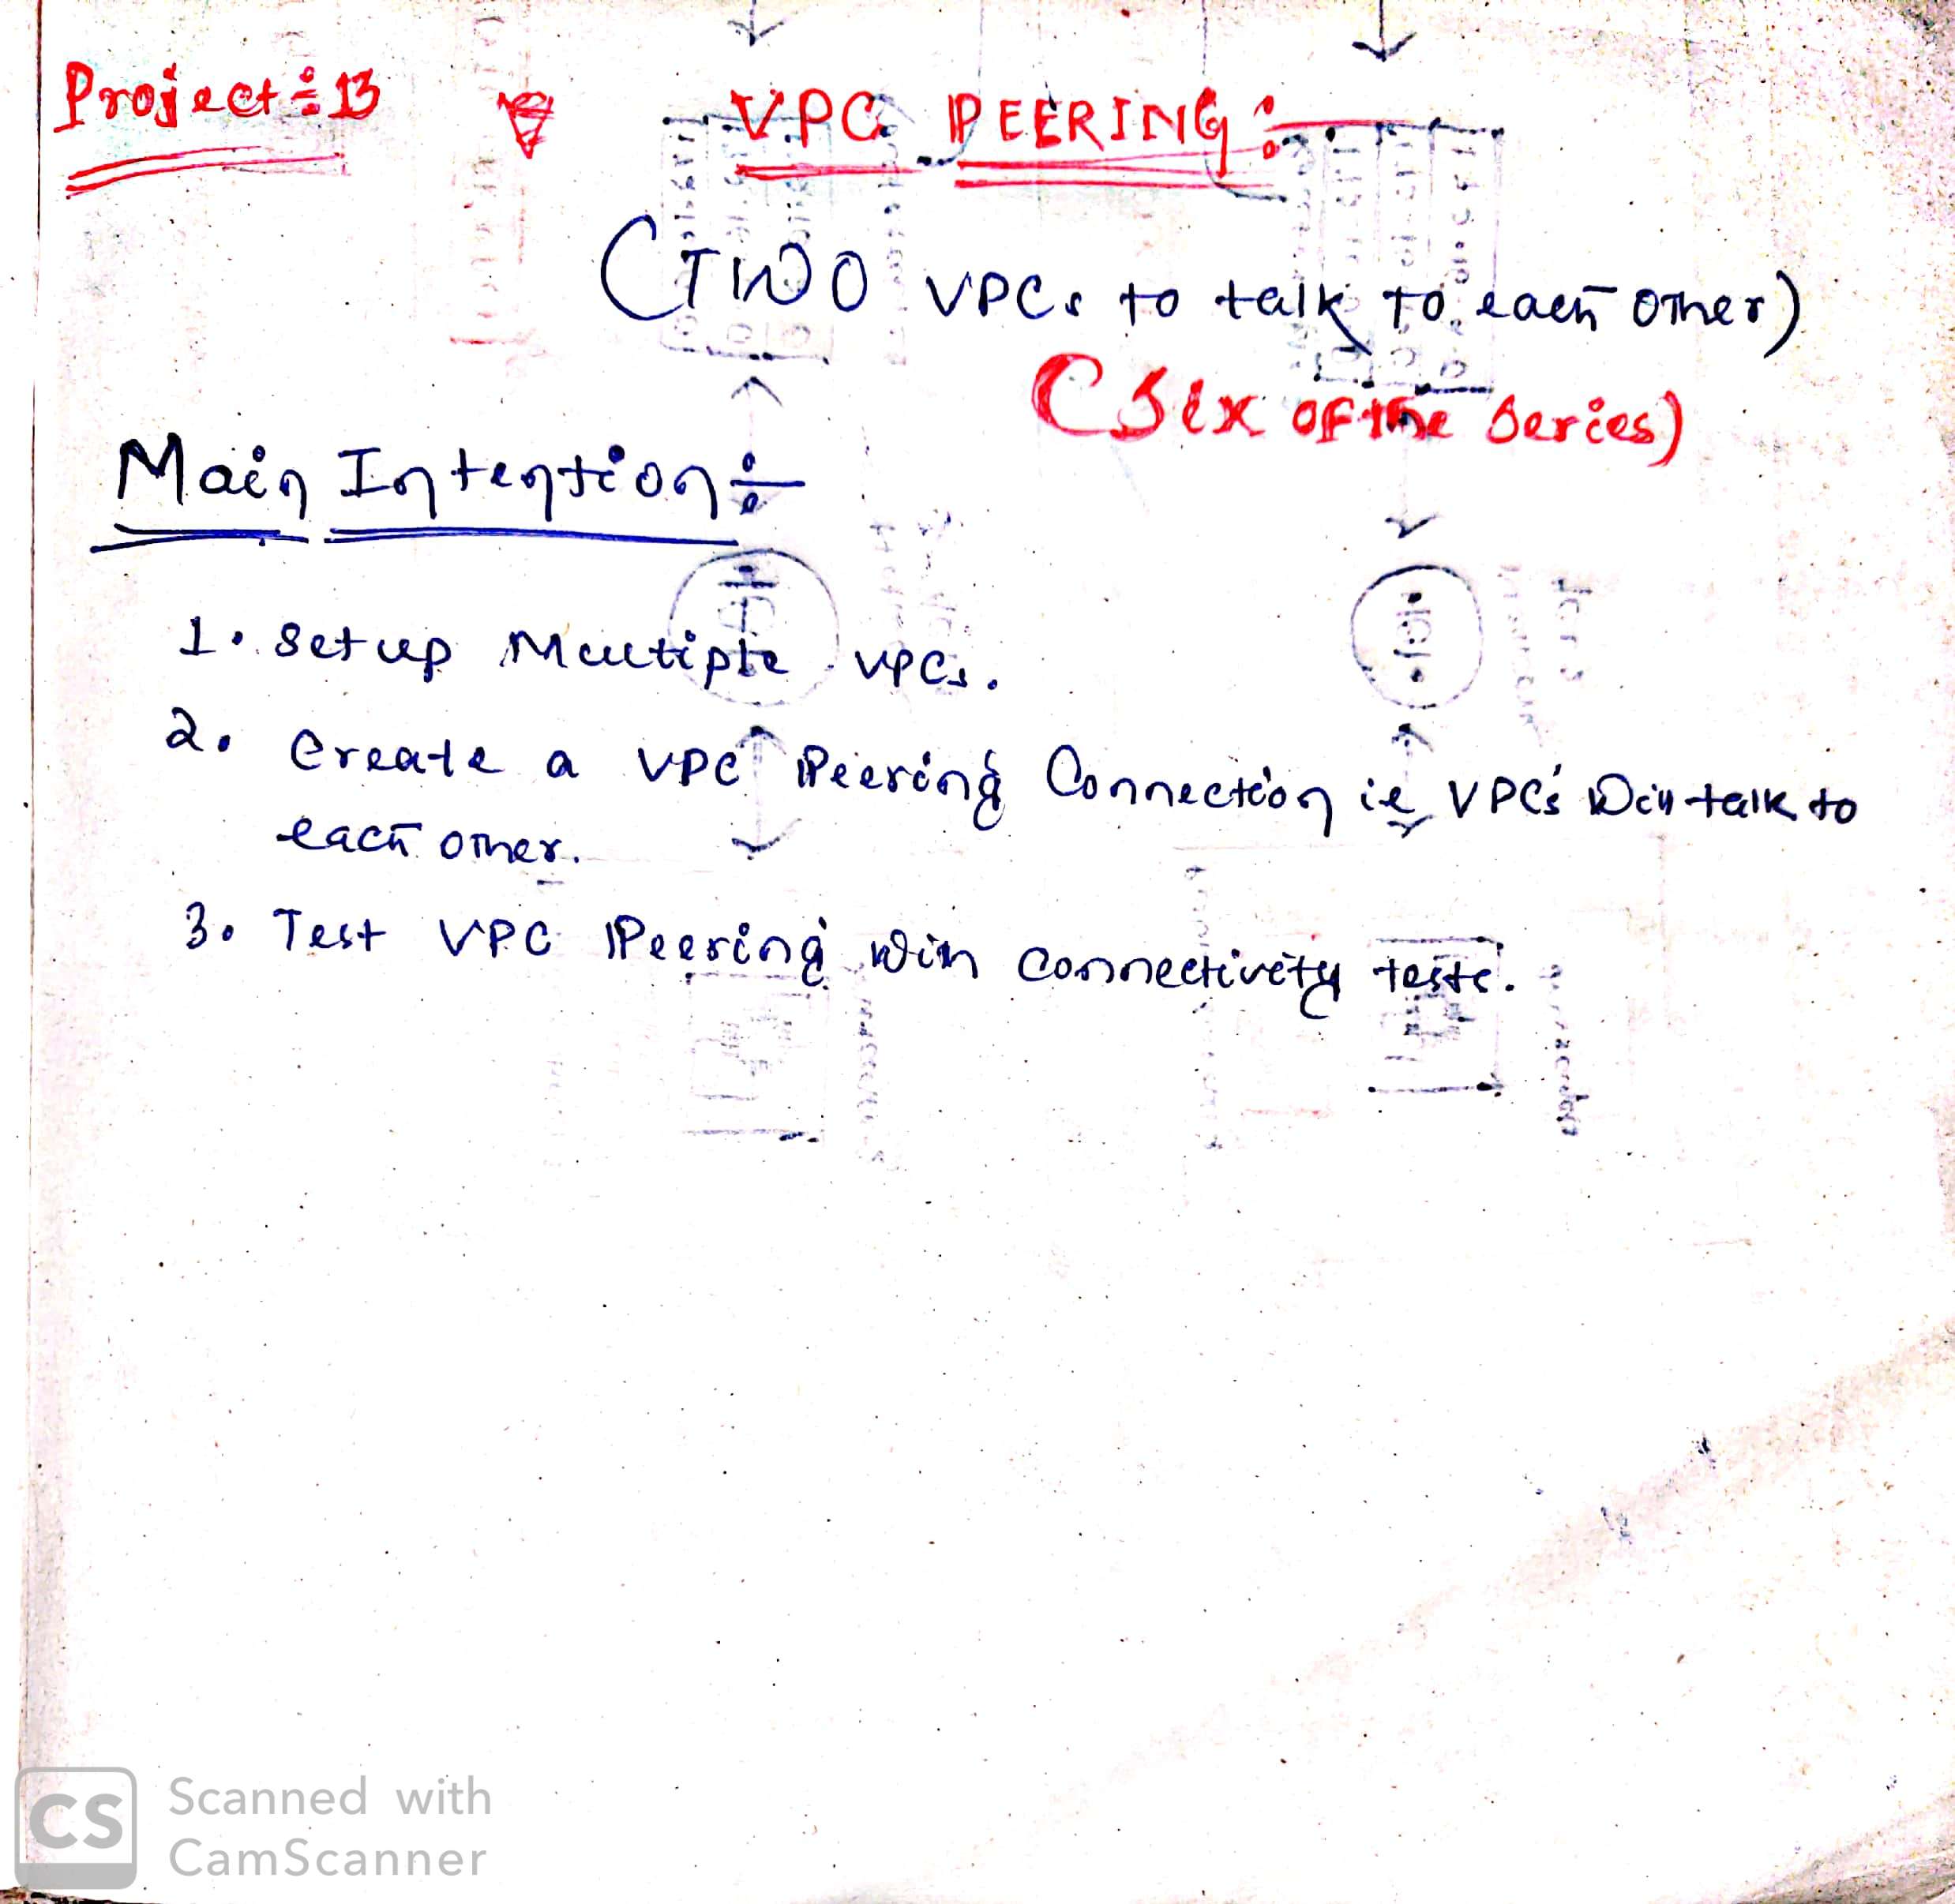 Project :- 13
VPC PEERING :-
(TWO VPCs to talk to each other)
(Six of the Series)
Main Intention :-
1. Setup Multiple VPCs.
2. Create a VPC Peering Connection ie VPC's Will talk to
each other.
3. Test VPC Peering With connectivity tests.
CS
Scanned with
CamScanner